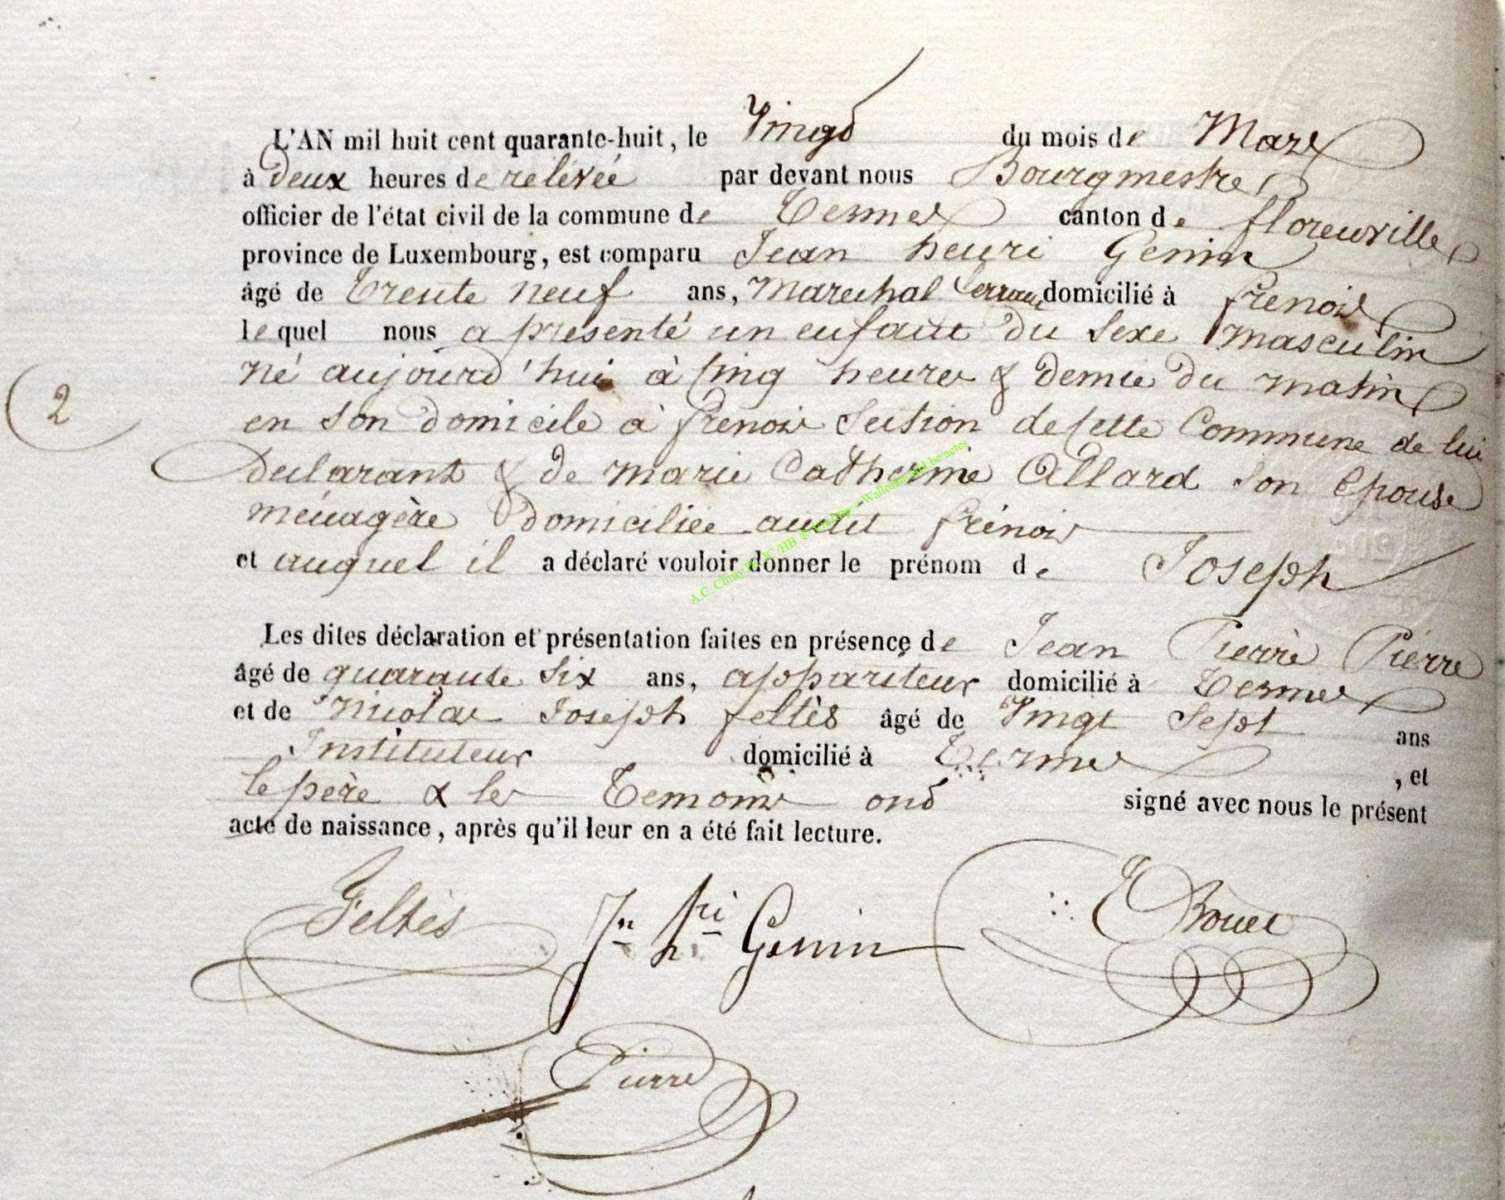 L'AN mil huit cent quarante-huit, le Vingt du mois de Mars
à deux heures de relévée par devant nous Bourgmestre
officier de l'état civil de la commune de Termes canton de florenville
province de Luxembourg, est comparu Jean henri Genin
âgé de Trente neuf ans, marechal ferrant domicilié à frenois
lequel nous a présenté un enfant du sexe masculin
né aujourd'hui à Cinq heures & demie du matin
2
en son domicile à frenois Section de cette Commune de lui
declarant & de marie Catherine Allard son Epouse
ménagère domiciliée audit frénois
et auquel il a déclaré vouloir donner le prénom de Joseph
Les dites déclaration et présentation faites en présence de Jean Pierre Pierre
âgé de quarante six ans, appariteur domicilié à Termes
et de Nicolas Joseph feltès âgé de Vingt Sept ans
Instituteur domicilié à Termes , et
le père & les Temoins ont signé avec nous le présent
acte de naissance, après qu'il leur en a été fait lecture.
Feltès Jn hri Genin
Pierre